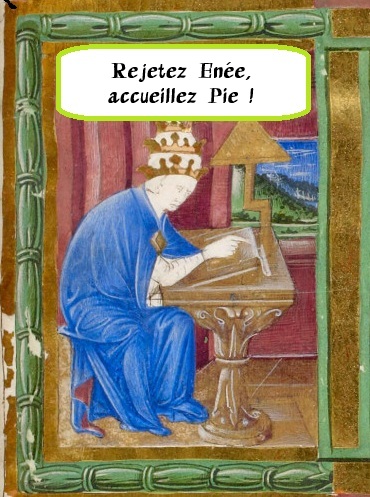 Rejetez Enée,
accueillez Pie !